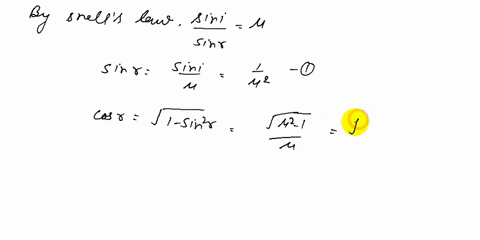 By snell's law. sin i / sin r = μ
sin r = sin i / μ = 1 / μ² - ①
cos r = √(1 - sin² r) = √(μ² - 1) / μ =